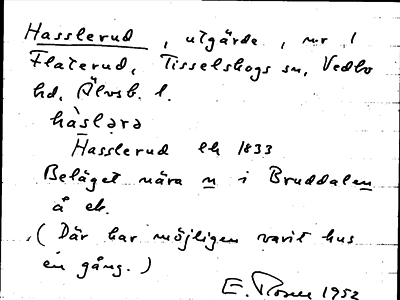 Hasslerud, utgärde, nr 1
Flaterud, Tisselskogs sn, Vedbo
hd, Älvsb. l.
hàslərə
Hasslerud lk 1833
Beläget nära n i Bruddalen
å ek.
(Där har möjligen varit hus
en gång.)
E. 1952